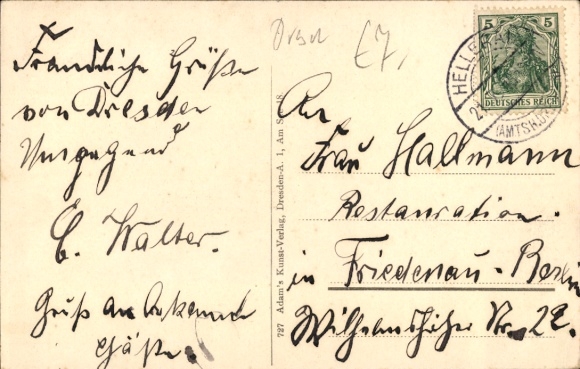 Freundliche Grüße
von Dresden
Umgegend
E. Walter.
Gruß an bekannte
Gäste.
727 Adam's Kunst-Verlag, Dresden-A. 1, Am See 18
Dresd
£7,
5 5
DEUTSCHES REICH
HELLER
21
(AMTSH.
An
Frau Hallmann
Restauration.
in Friedenau-Berlin
Wilhelmshöher Str. 22.